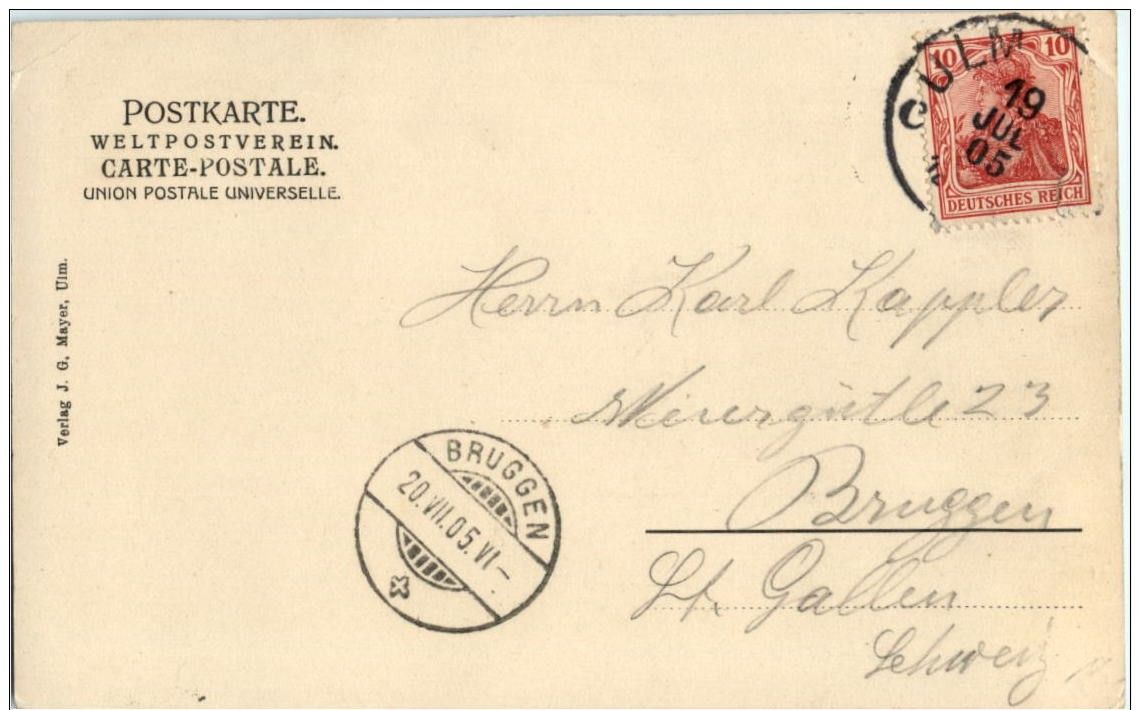 POSTKARTE.
WELTPOSTVEREIN.
CARTE-POSTALE.
UNION POSTALE UNIVERSELLE.
Verlag J. G. Mayer, Ulm.
ULM
19
JUL
05
10 10
DEUTSCHES REICH
Herrn Karl Kappler
23
Bruggen
St. Gallen
Schweiz
BRUGGEN
20.VII.05.VI–